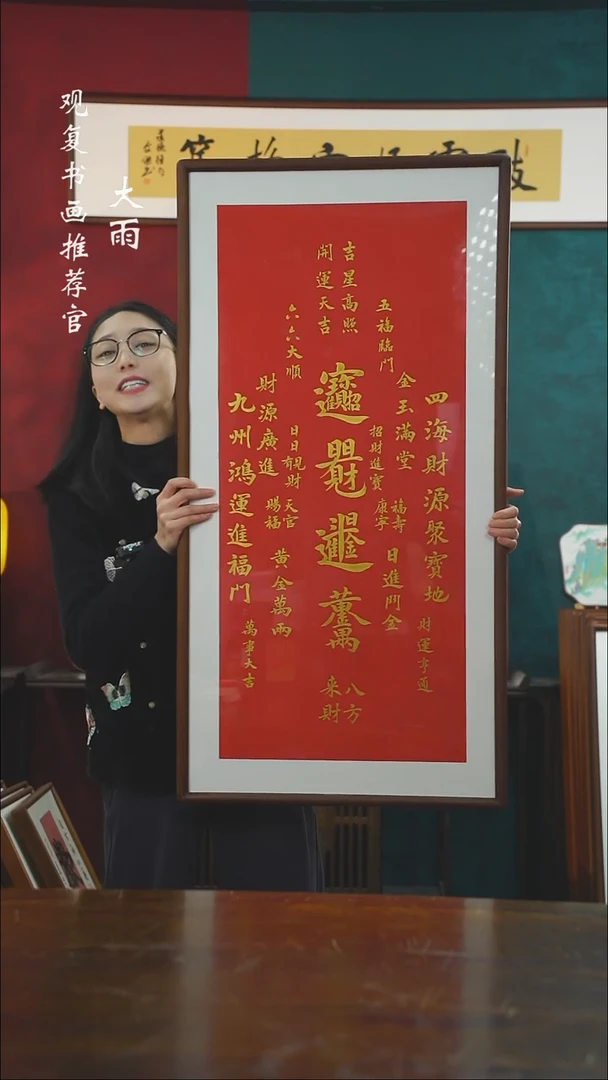 观复书画推荐官
大雨
吉星高照
開運天吉
五福臨門
六六大順
四海財源聚寶地
財運亨通
金玉滿堂
招財進寶
福壽
康寧
日進鬥金
八方
来財
財源廣進
天官
賜福
黄金萬兩
九州鴻運進福門
萬事大吉